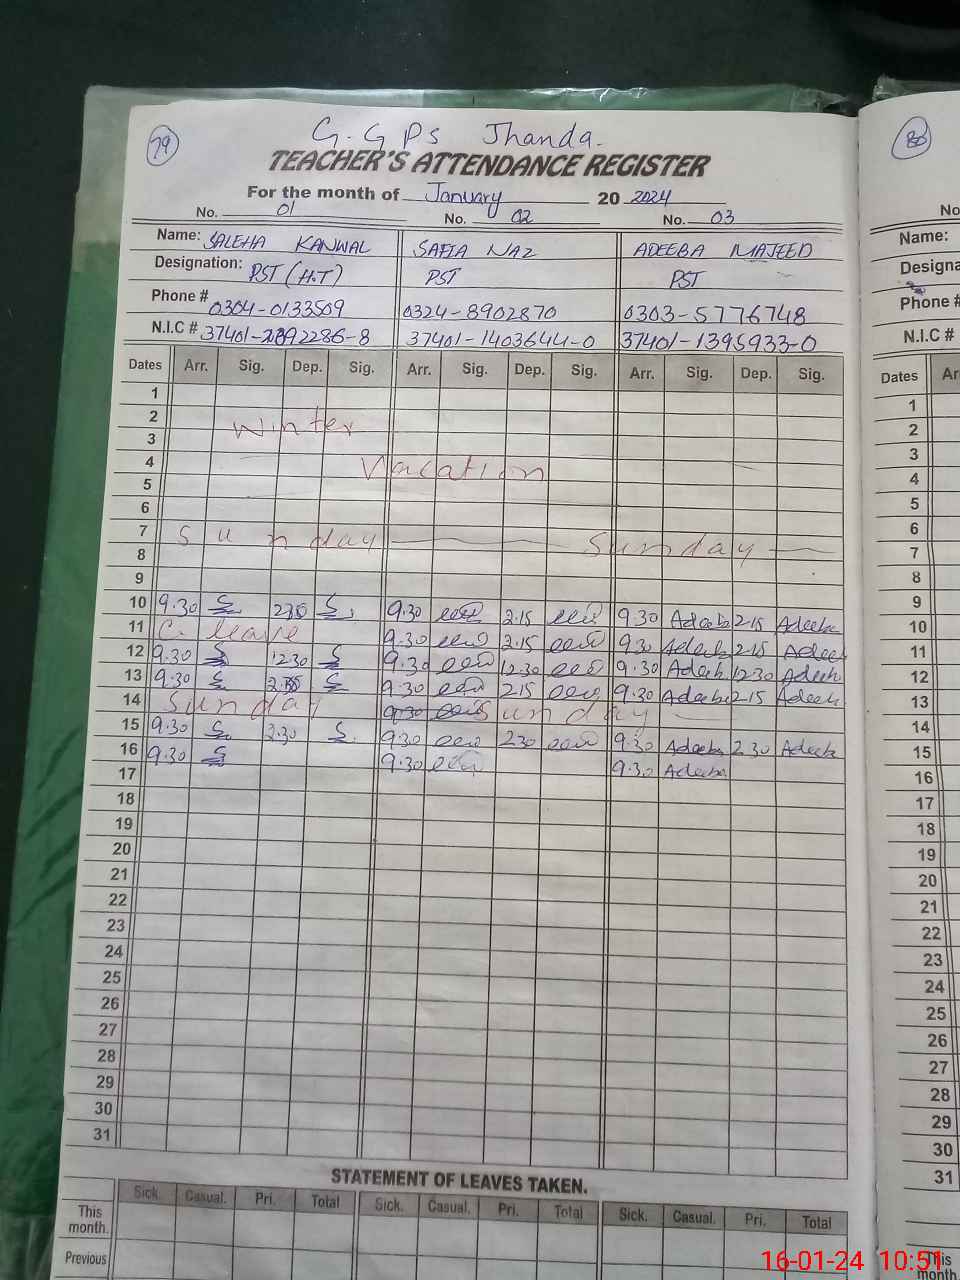 79
G.G.P.S Jhanda.
TEACHER'S ATTENDANCE REGISTER
For the month of January 20 2024
No. 01 No. 02 No. 03
Name: SALEHA KANWAL SAFIA NAZ ADEEBA MAJEED
Designation: PST (H.T) PST PST
Phone # 0304-0133509 0324-8902870 0303-5776748
N.I.C # 37401-1403644-0 37401-1395933-0
Dates Arr. Sig. Dep. Sig. Arr. Sig. Dep. Sig. Arr. Sig. Dep. Sig.
1
2 Winter
3
4 Vacation
5
6
7 Sunday Sunday
8
9
10 9.30 9.30 2.15 9.30 Adeeba 2.15 Adeeba
11 C. leave 9.30 2.15 9.30 Adeeb 2.15 Adeeb
12 9.30 12.30 9.30 12.30 9.30 Adeeb 12.30 Adeeb
13 9.30 9.30 2.15 9.30 Adeeba 2.15 Adeeb
14 Sunday 9.30 Sunday
15 9.30 2.30 9.30 2.30 9.30 Adeeba 2.30 Adeeba
16 9.30 9.30 9.30 Adeeba
17
18
19
20
21
22
23
24
25
26
27
28
29
30
31
STATEMENT OF LEAVES TAKEN.
Sick. Casual. Pri. Total Sick. Casual. Pri. Total Sick. Casual. Pri. Total
This month.
Previous
80
No
Name:
Designa
Phone #
N.I.C #
Dates Ar
1
2
3
4
5
6
7
8
9
10
11
12
13
14
15
16
17
18
19
20
21
22
23
24
25
26
27
28
29
30
31
This
month
16-01-24 10:51